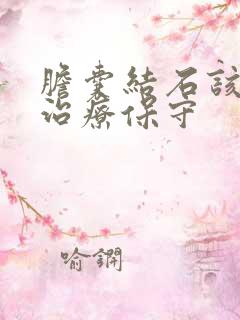 膽囊結石該
治療保守
喻鐦